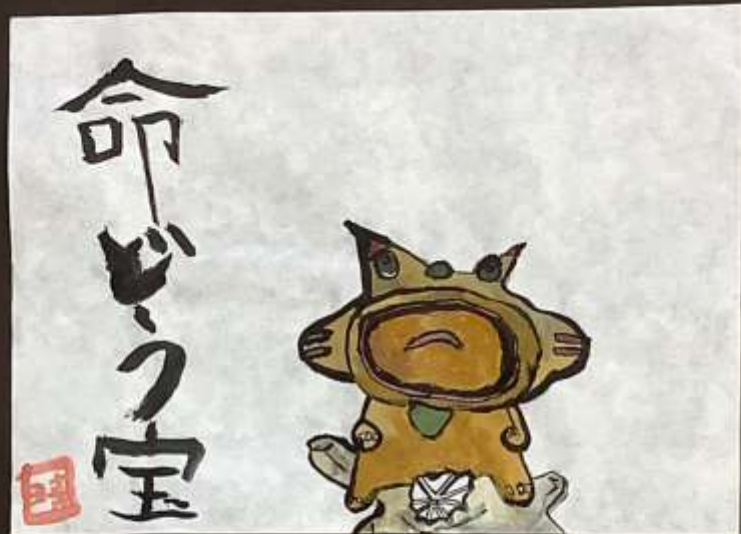 命どぅ宝